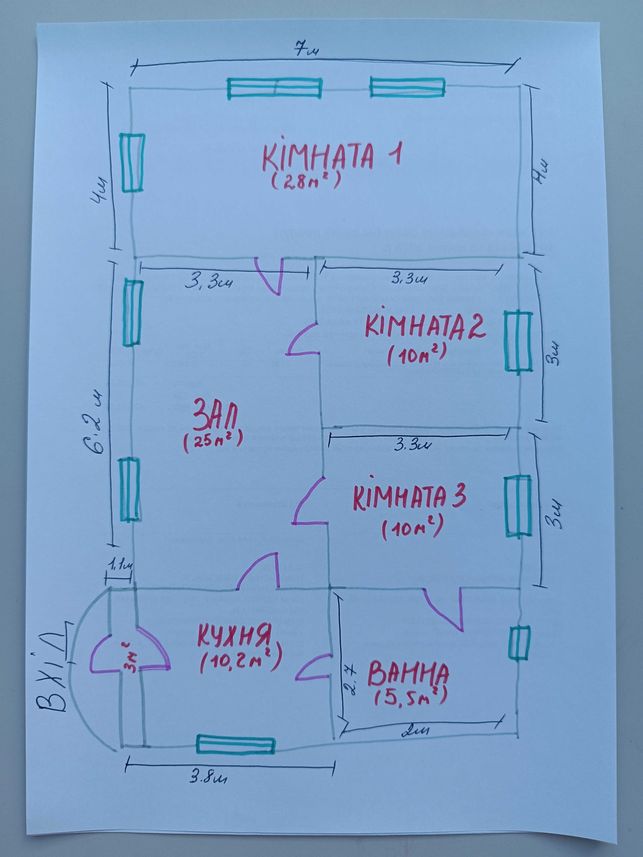 7м
КІМНАТА 1
(28м²)
4м
4м
3,3м
3.3м
КІМНАТА 2
(10м²)
3м
6.2 м
ЗАЛ
(25м²)
3.3м
КІМНАТА 3
(10м²)
3м
1,1м
ВХІД
3м²
КУХНЯ
(10,2м²)
2.7
ВАННА
(5,5м²)
2м
3.8м